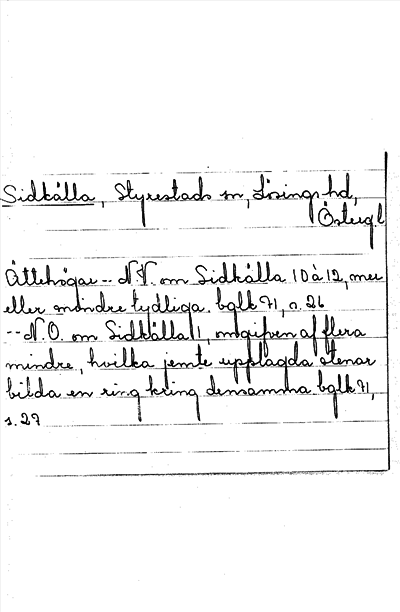 Sidkälla, Styrestads sn, Lösings hd,
Östergl
Ättehögar -- N.V. om Sidkälla 10 à 12, mer
eller mindre tydliga. bglk 71, s. 26
-- N.O. om Sidkälla 1, omgifven af flera
mindre, hvilka jemte upplagda stenar
bilda en ring kring densamma. bglk 71,
s. 27